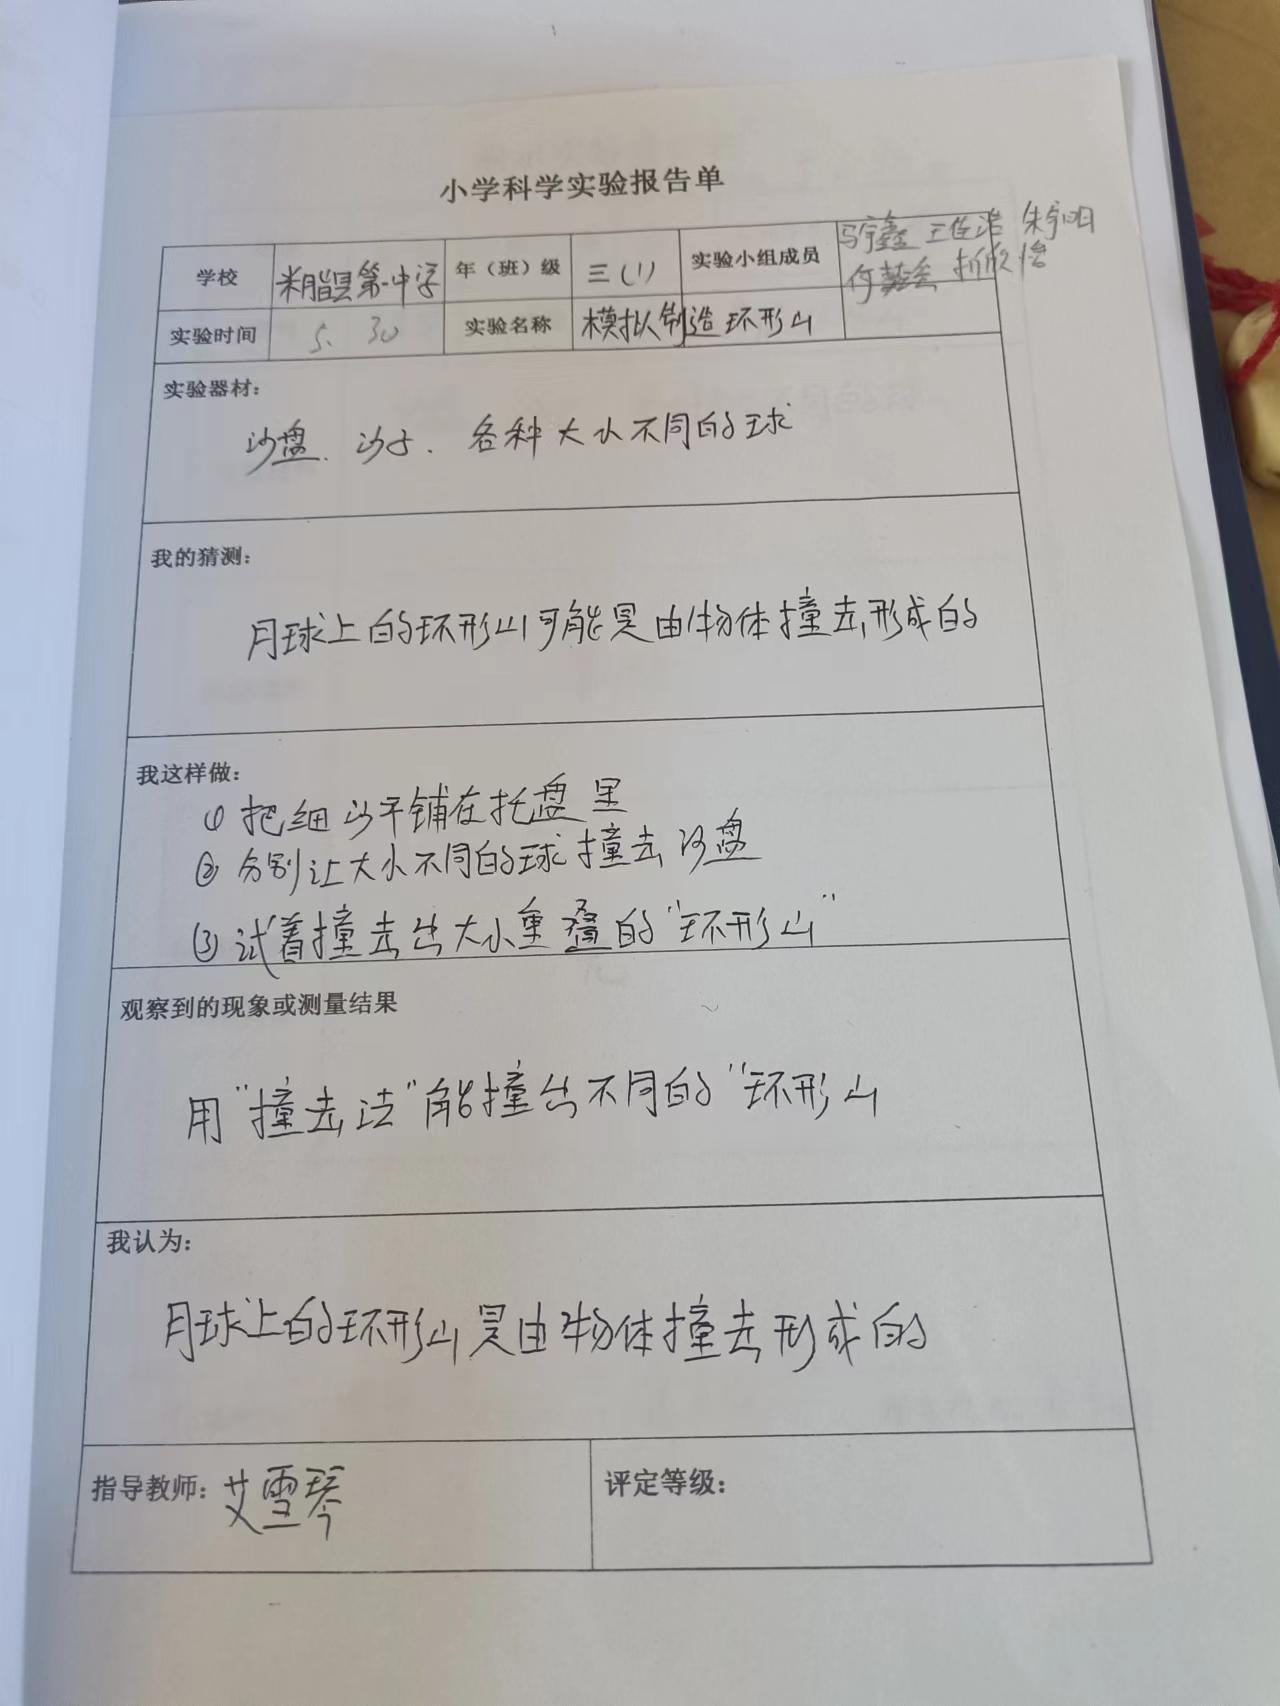 小学科学实验报告单
学校 米脂县第一中学 年（班）级 三（1） 实验小组成员 马宇鑫 王佳浩 朱宇阳
何 折欣怡
实验时间 5. 30 实验名称 模拟制造环形山
实验器材：
沙盘、沙子、各种大小不同的球
我的猜测：
月球上的环形山可能是由物体撞击形成的
我这样做：
① 把细沙平铺在托盘里
② 分别让大小不同的球撞击沙盘
③ 试着撞击出大小重叠的“环形山”
观察到的现象或测量结果
用“撞击法”能撞出不同的“环形山
我认为：
月球上的环形山是由物体撞击形成的
指导教师：艾雪琴 评定等级：